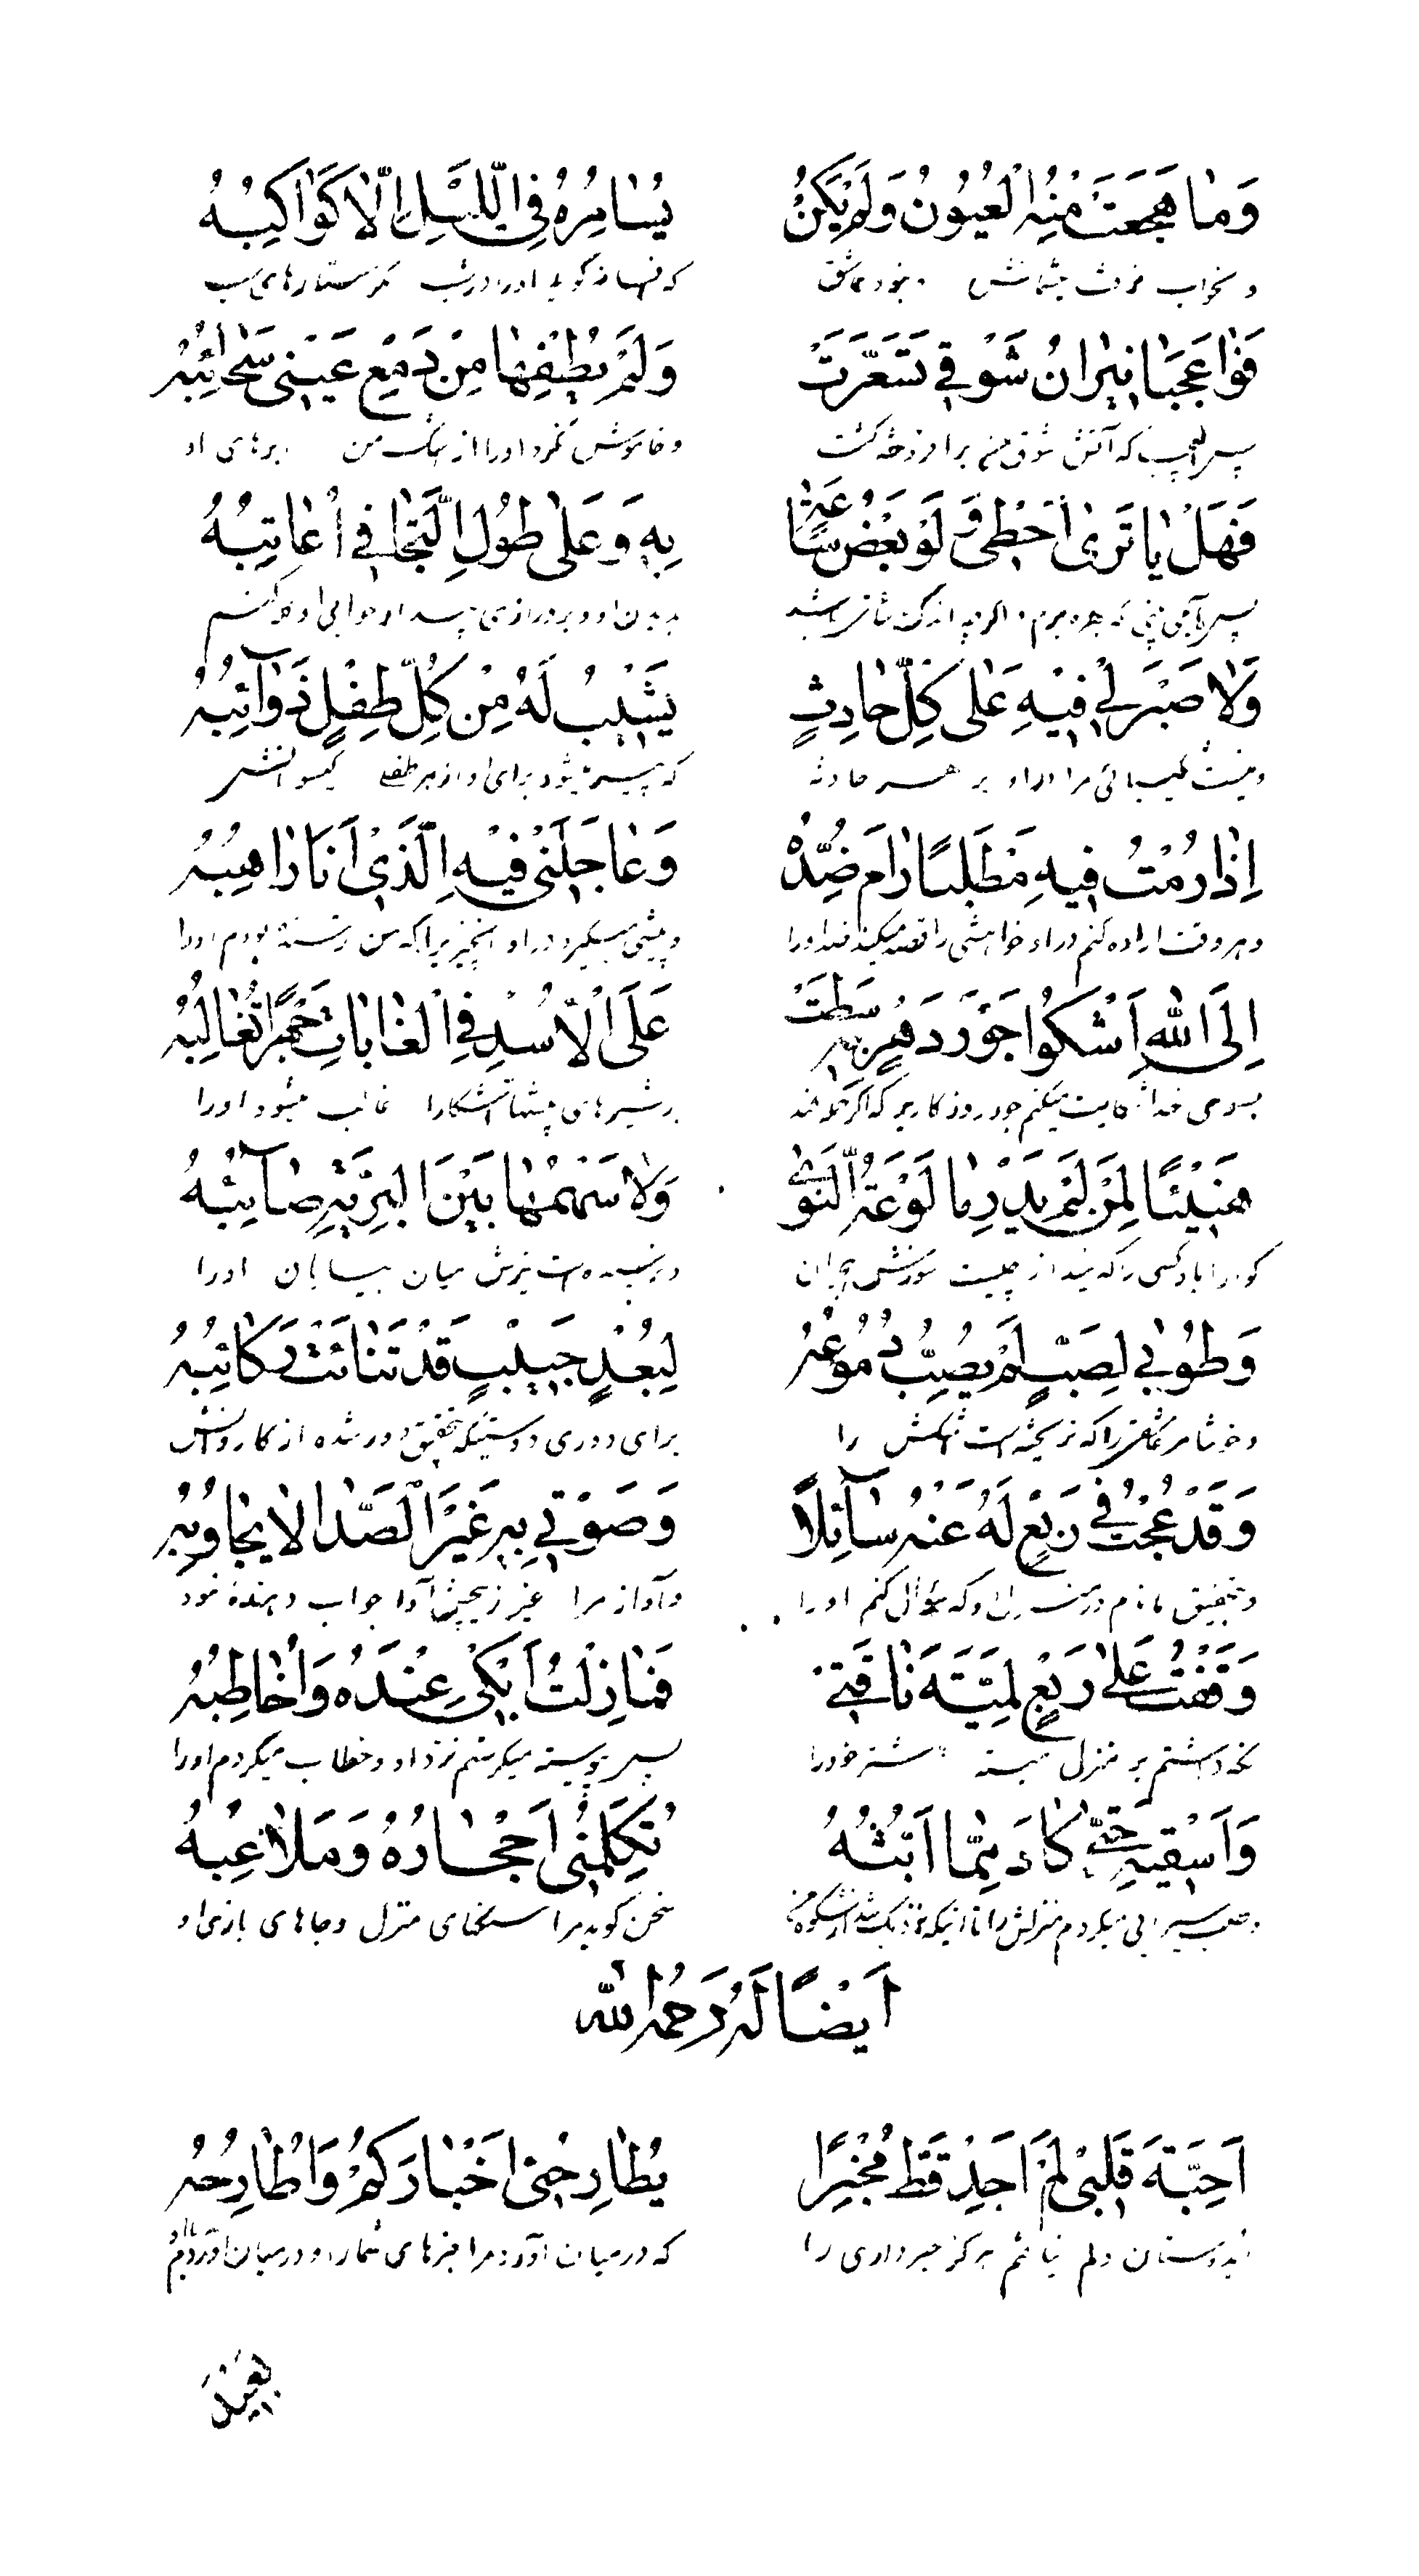 وَمٰا هَجَعَتْ مِنْهُ الْعُيُونُ وَلَمْ يَكُنْ يُسٰامِرُهُ فِي اللَّيْلِ اِلّٰا كَوٰاكِبُهُ
و بخواب نرفت چشمانش و نبود عاشق که افسانه گوید او را در شب مگر ستارهای شب
فَوٰا عَجَبٰا نِيرٰانُ شَوْقِي تَسَعَّرَتْ وَلَمْ يُطْفِهٰا مِنْ دَمْعِ عَيْنِي سَحٰائِبُهُ
پس ای عجب که آتش شوق من بر افروخته گشت و خاموش نکرد او را از اشک من ابرهای او
فَهَلْ يٰا تَرىٰ اَحْظىٰ وَلَوْ بَعْضَ سٰاعَةٍ بِهِ وَعَلىٰ طُولِ التَّجٰافِي اُعٰاتِبُهُ
بدیدن او و بر درازی
وَلٰا صَبْرَ لِي فِيْهِ عَلىٰ كُلِّ حٰادِثٍ يَشْيبُ لَهُ مِنْ كُلِّ طِفْلٍ ذَوٰآئِبُهُ
و نیست شکیبائی مرا در او بر هر حادثه که پیر میشود برای او از هر طفلی گیسوانش
اِذٰا رُمْتُ فِيهِ مَطْلَبًا رٰامَ ضِدَّهُ وَعٰاجَلَنِي فِيْهِ الَّذِيْ اَنَا رٰاهِبُهُ
و هر وقت اراده کنم در او خواهشی را قصد میکند ضد او را و پیشی میگیرد در او آنچیزیرا که من ترسنده بودم او را
اِلَى اللهِ اَشْكُوا جَوْرَ دَهْرٍ سَطَتْ بِهِ عَلَى الْاُسْدِ فِي الْغٰابٰاتِ جَهْرًا ثَعٰالِبُهُ
بسوی خدا شکایت میکنم جور روزگاریرا که اگر حمله کند بر شیرهای بیشها آشکارا غالب میشود او را
هَنِيْئًا لِمَنْ لَمْ يَدْرِ مٰا لَوْعَةُ النَّوىٰ وَلٰا سَهْمُهٰا بَيْنَ الْبَرِيَّةِ صٰآئِبُهُ
گوارا باد کسی را که نمیداند چیست سوزش هجران و نرسیده است تیرش میان بیابان او را
وَطُوْبىٰ لِصَبٍّ لَمْ يَصُبَّ دُمُوعَهُ لِبُعْدِ حَبِيْبٍ قَدْ تَنٰائَتْ رَكٰائِبُهُ
و خوشا مر عاشقی را که نریخته است اشکش را برای دوری دوستیکه بتحقیق دور شده از کاروانش
وَقَدْ عُجْتُ فِي رَبْعٍ لَهُ عَنْهُ سٰآئِلًا وَصَوْتِي بِهِ غَيْرَ الصَّدٰا لٰا يُجٰاوِبُهُ
و بتحقیق ماندم در منزل او که سؤال کنم او را و آواز مرا غیر از پیچش آوا جواب دهنده نبود
وَقَفْتُ عَلىٰ رَبْعٍ لِمَيَّةَ نٰاقَتِي فَمٰا زِلْتُ اَبْكِي عِنْدَهُ وَاُخٰاطِبُهُ
نگه داشتم بر منزل میته شتر خود را پس پیوسته میگریستم نزد او و خطاب میکردم او را
وَاَسْقِيهِ حَتّىٰ كٰادَ مِمّٰا اَبُثُّهُ تُكَلِّمُنِي اَحْجٰارُهُ وَمَلٰاعِبُهُ
سیرابی میکردم منزلش را تا اینکه نزدیک شد از شکوه من سخن گوید مرا سنگهای منزل و جاهای بازی او
اَيْضًا لَهُ رَحِمَهُ اللهُ
اَحِبَّةَ قَلْبِي لَمْ اَجِدْ قَطُّ مُخْبِرًا يُطٰارِحُنِي اَخْبٰارَكُمْ وَاُطٰارِحُهُ
ای دوستان دلم نیافتم هرگز خبرداری را که در میان آورد مرا خبرهای شما را و در میان آوردم با او
بَعِيْدُ